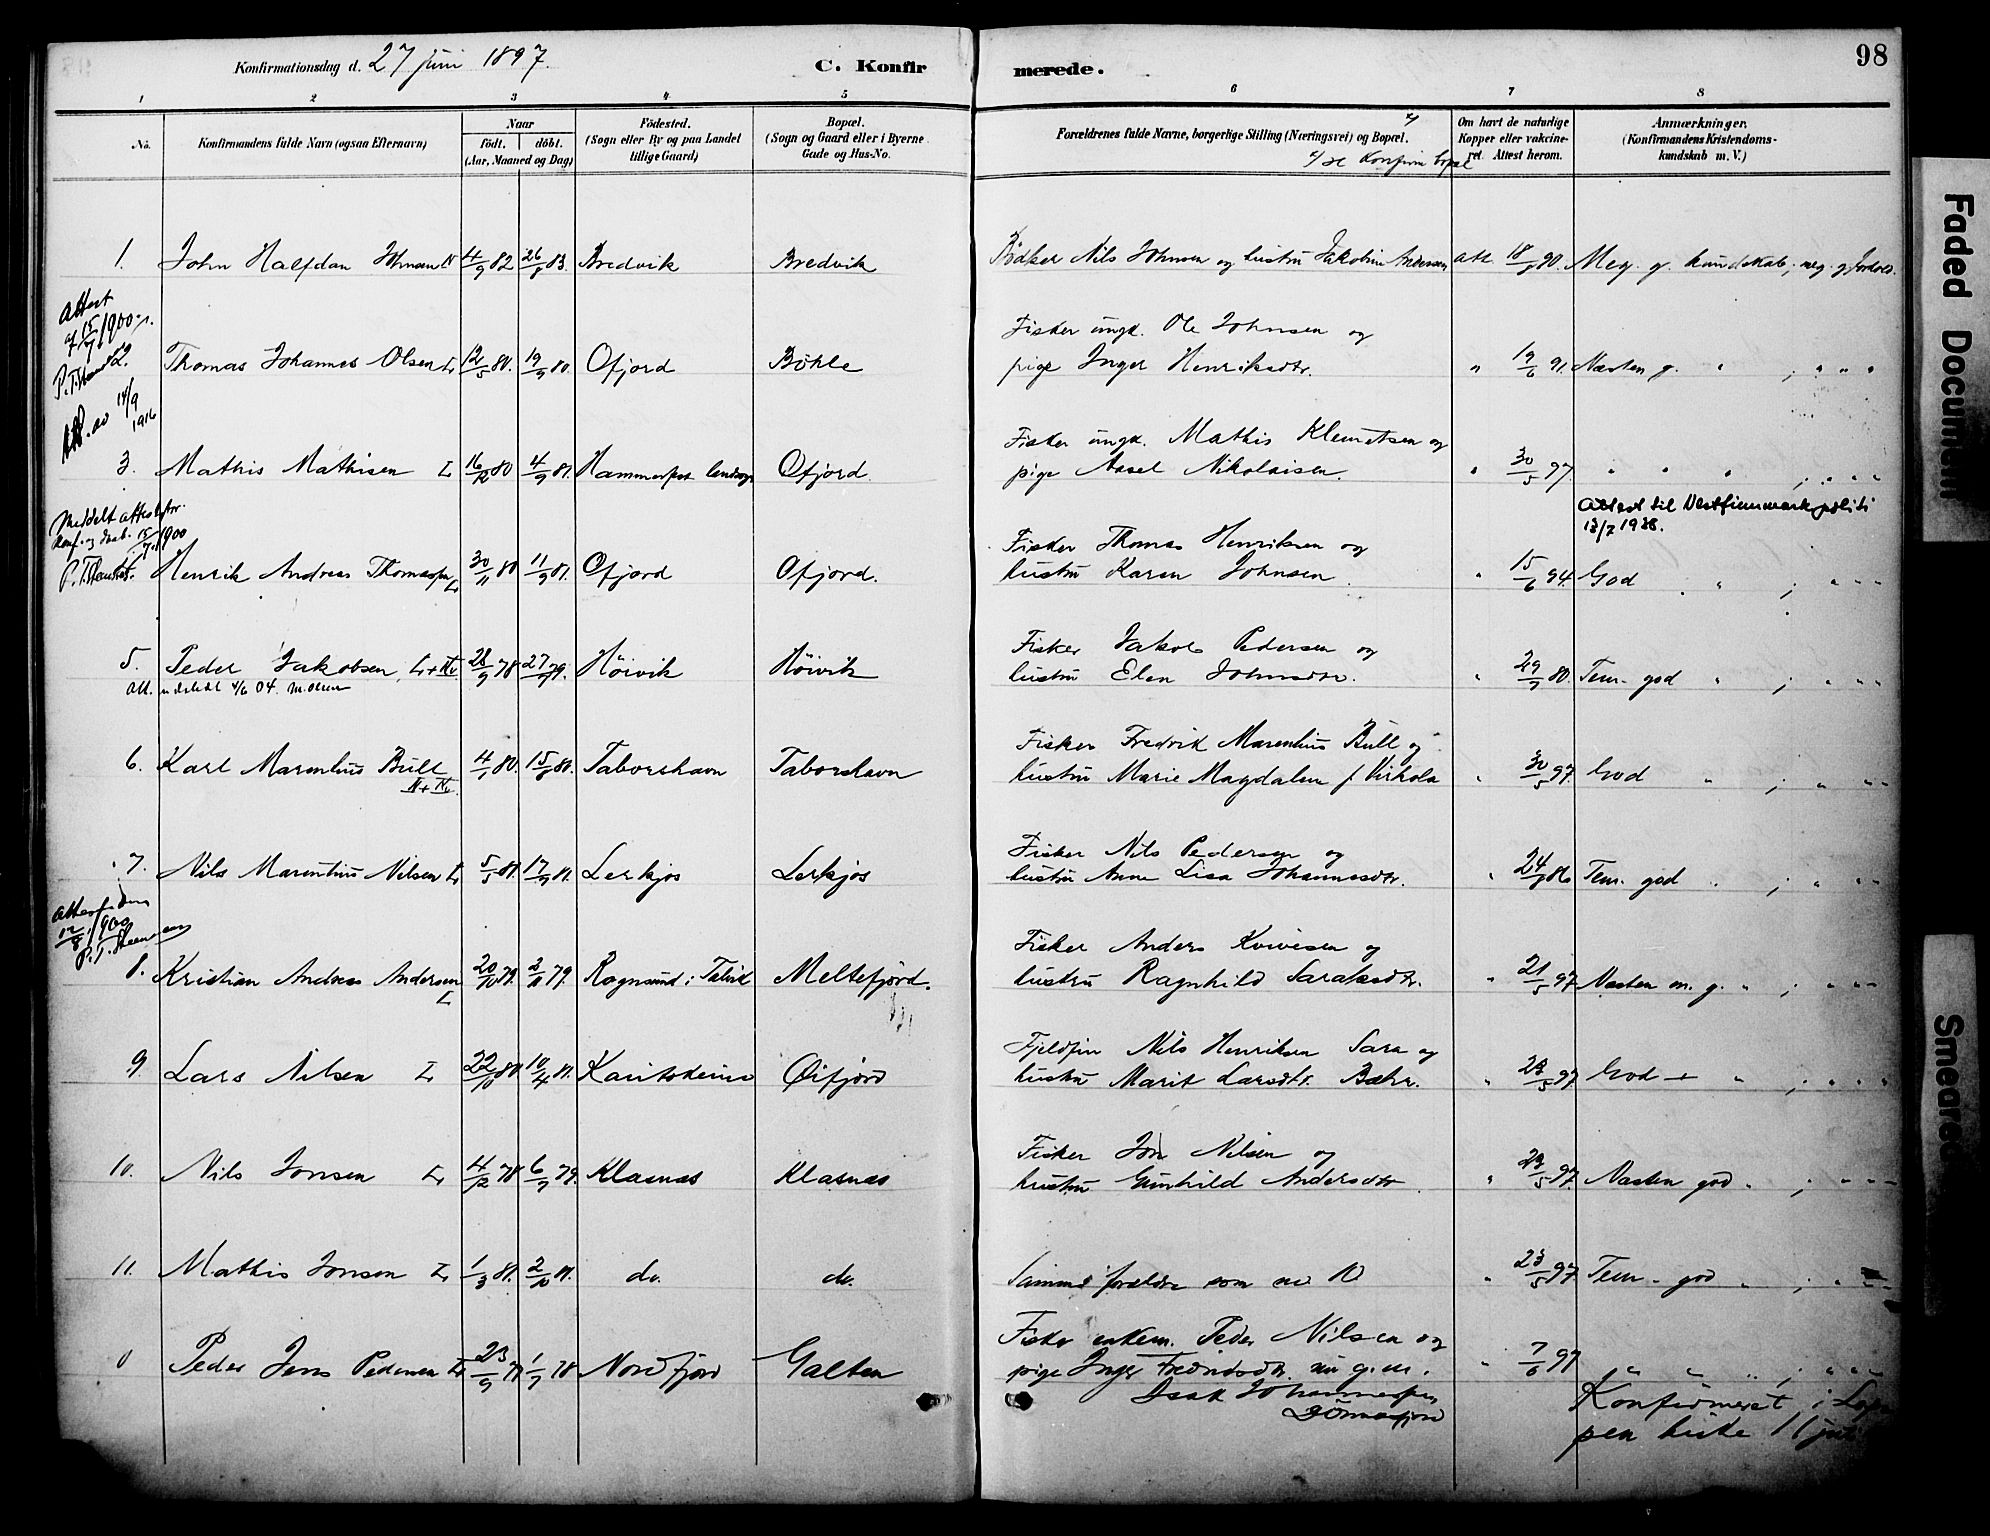 98
Konfirmationsdag d. 27 juni 1897.
C. Konfir merede.
1 2 3 4 5 6 7 8
No.
Konfirmandens fulde Navn (ogsaa Efternavn)
Naar
födt. döbt.
(Aar, Maaned og Dag)
Födested.
(Sogn eller By og paa Landet tillige Gaard)
Bopæl.
(Sogn og Gaard eller i Byerne Gade og Hus-No.
Forældrenes fulde Navne, borgerlige Stilling (Næringsvei) og Bopæl.
Om havt de naturlige Kopper eller vakcineret. Attest herom.
Anmærkninger.
(Konfirmandens Kristendomskundskab m. V.)
1. John Halfdan Johnsen N 4/9 82 26/8 83. Bredvik Bredvik Bödker Nils Johnsen og hustru Jakobine Andersen att. 90. Meg. g. kundskab; meg. g. forhold.
Attest
af 15/7 1900.
2. Thomas Johannes Olsen L 12/5 80. 19/9 80. Ofjord Böhle Fisker ungk. Ole Johnsen og
pige Inger Henriksdtr. " 19/6 91. Næsten g. " ; " " "
Att. av 14/9 1916
3. Mathis Mathisen L 16/12 80 4/9 81. Hammerfest landsogn Ofjord. Fisker ungk. Mathis Klemetsen og
pige Aasel Nikolaisen. " 30/5 97. " " " ; " " "
Attest til Vestfinnmark politi
13/7 1938.
Meddelt attest for
konf. og daab. 15/7 1900
Henrik Andreas Thomassen L 30/11 80 11/9 81. Ofjord Ofjord. Fisker Thomas Henriksen og
hustru Karen Johnsen. " 15/6 94. God " ; " " "
5. Peder Jakobsen, L + Kv 28/9 78 Höivik Höivik Fisker Jakob Pedersen og
hustru Elen Johnsdtr. " 29/9 80. Tem. god " ; " " "
Att. udstedt 4/6 04. M. Olsen
6. Karl Marentius Bull N + Kv. 4/1 80. 15/8 80. Taborshavn Taborshavn Fisker Fredrik Marentius Bull og
hustru Marie Magdalene f. Virkola " 30/5 97. God " ; " " "
7. Nils Marentius Nilsen L 5/5 81. 17/9 81. Lerkjos Lerkjos Fisker Nils Pedersen og
hustru Anne Lisa Johannesdtr. " 86 Tem. god " ; " " "
12/8 1900
8. Kristian Andreas Andersen L 20/10 79. 2/11 79. Rognsund i Talvik Meltefjord. Fisker Anders Kvivesen og
hustru Ragnhild Saraksdtr. " 21/5 97 Næsten m. g. " ; " " "
9. Lars Nilsen L 22/10 80 10/4 81. Kautokeino Öifjord Fjeldfin Nils Henriksen Sara og
hustru Marit Larsdtr. Bæhr. " 97 God + " ; " " "
10. Nils Jonsen L 4/12 78 6/9 79. Klasnas Klasnas Fisker Jon Nilsen og
hustru Gunhild Andersdtr. " 97. Næsten god " ; " " "
11. Mathis Jonsen L 1/3 81. 2/10 81. do. do. Samme forældre som no 10 " 23/5 97. Tem. god " ; " "
Peder Jens Pedersen L 23/9 77 1/7 78 Nordfjord Galten Fisker enkem. Peder Nilsen og
pige Inger Fredriksdtr. nu g. m.
Isak Johannessen
" 7/6 97 " " " ; " " "
Konfirmeret i Lop
pen kirke 11 juli
Faded Document
Smeared